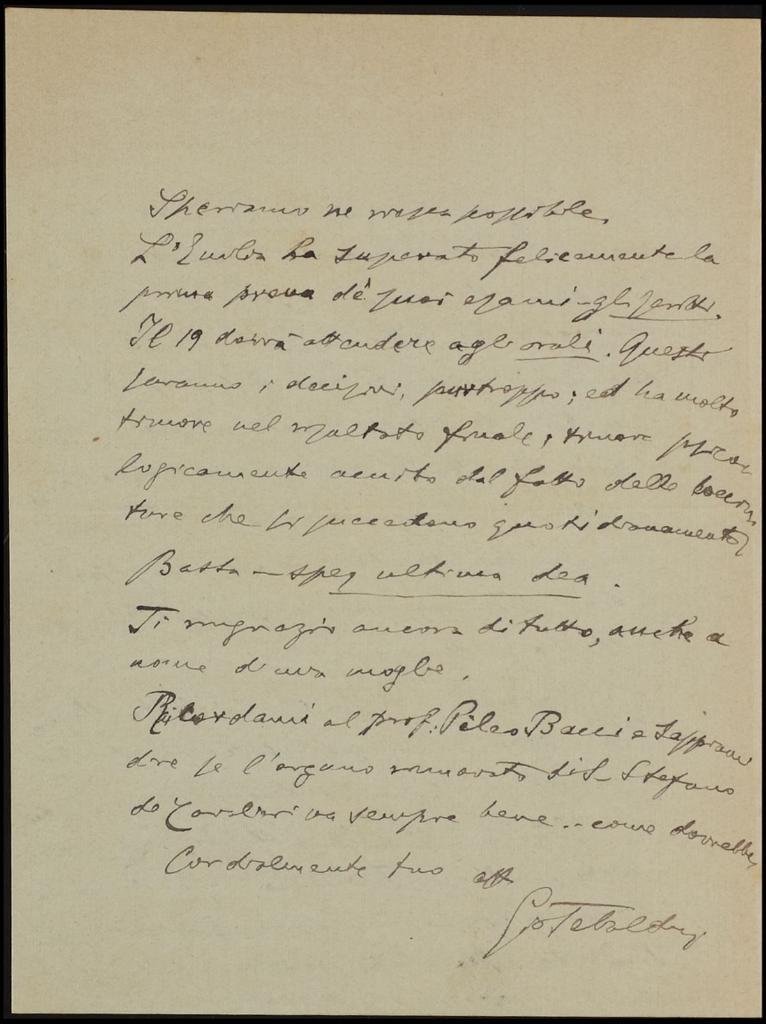 Speriamo ne riesca possibile.
L'Emilia ha superato felicemente la
prima prova de' suoi esami - gli scritti.
Il 19 dovrà attendere agli orali. Questi
saranno i decisivi, purtroppo; ed ha molto
timore nel risultato finale; timore psico-
logicamente acuito dal fatto delle boccia-
ture che si succedono quotidianamente,
Basta - spes ultima dea.
Ti ringrazio ancora di tutto, anche a
nome di mia moglie.
Ricordami al prof. Pèleo Bacci e sappiami
dire se l'organo rinnovato di S. Stefano
de Cavalieri va sempre bene.. come dovrebbe,
Cordialmente tuo aff
Gio Tebaldini